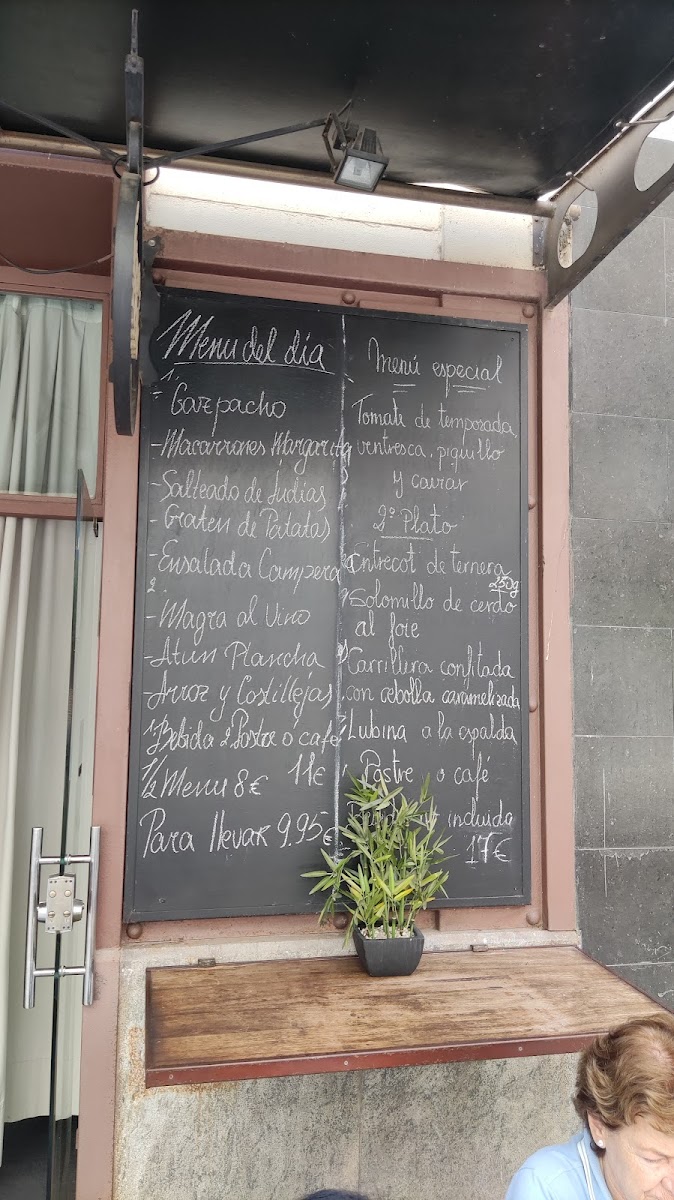 Menu del día
1.
- Gazpacho
- Macarrones Margarita
- Salteado de Judias
- Graten de Patatas
- Ensalada Campera
2.
- Magra al Vino
- Atun Plancha
- Arroz y Costillejas
1 Bebida 2 Postre o café
11€
1/2 Menu 8€
Para llevar 9.95€
Menú especial
Tomate de temporada,
ventresca, piquillo
y caviar
2º Plato
Entrecot de ternera
250g
Solomillo de cerdo
al foie
Carrillera confitada
con cebolla caramelizada
Lubina a la espalda
Postre o café
incluida
17€